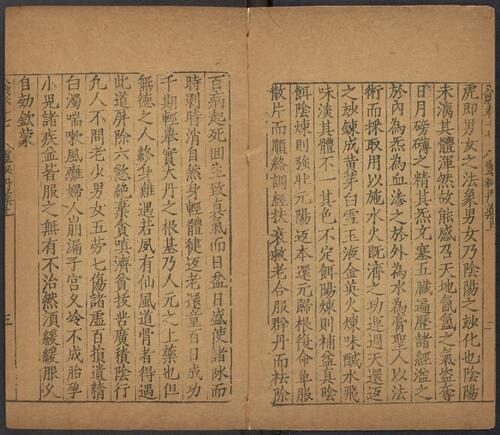 虎即男女之法象男女乃陰陽之妙化也陰陽
未漓其體渾然故能感召天地氤氳之氣盜奪
日月磅礴之精其炁文塞五臟遍歷諸經溢之
於內為炁為血滲之於外為水為膏聖人以法
術而採取用以施水火既濟之功運過天還返
之妙鍊成黃芽白雪玉液金英火煉味鹹水飛
味淡其體不一其色不定餌陽煉則補益真陰
餌陰煉則強壯元陽返本還元歸根復命單服
散片而順絡調經扶衰救老合服群丹而祛除
百病起死回生致真氣而日益日盛使諸脉而
時剥時消自然身輕體健返老還童百日成功
千期輕舉實大丹之根基乃人元之上藥也但
無德之人終身難遇若夙有仙風道骨者得遇
此道屏除六慾絶棄貪嗔濟貧拔苦廣積陰行
凡人不問老少男女五勞七傷諸虛百損遺精
白濁喘嗽風癱婦人崩漏子宮久冷不成胎孕
小兒諸疾並皆服之無有不治然須緩緩服久
自効欽蒙
三